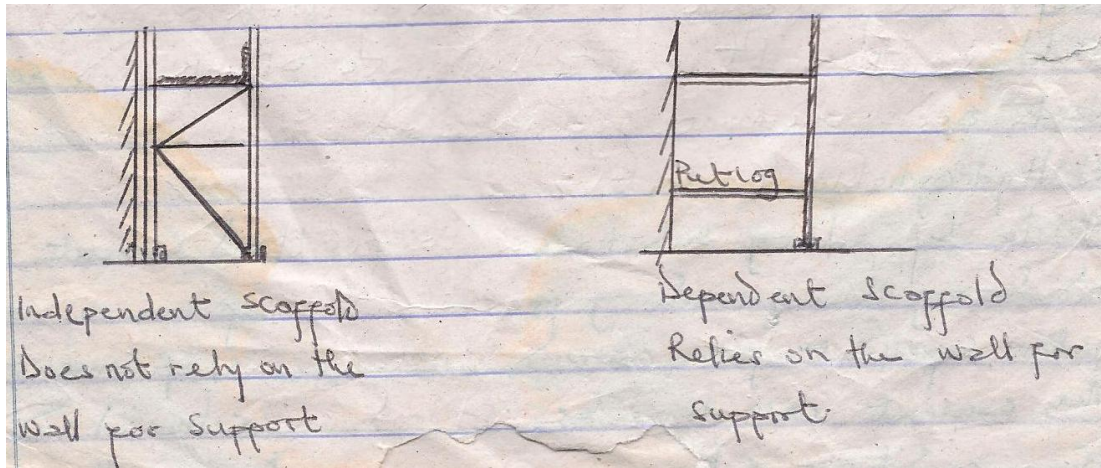 Putlog
Independent Scaffold
Does not rely on the
wall for Support
Dependent Scaffold
Relies on the wall for
Support.